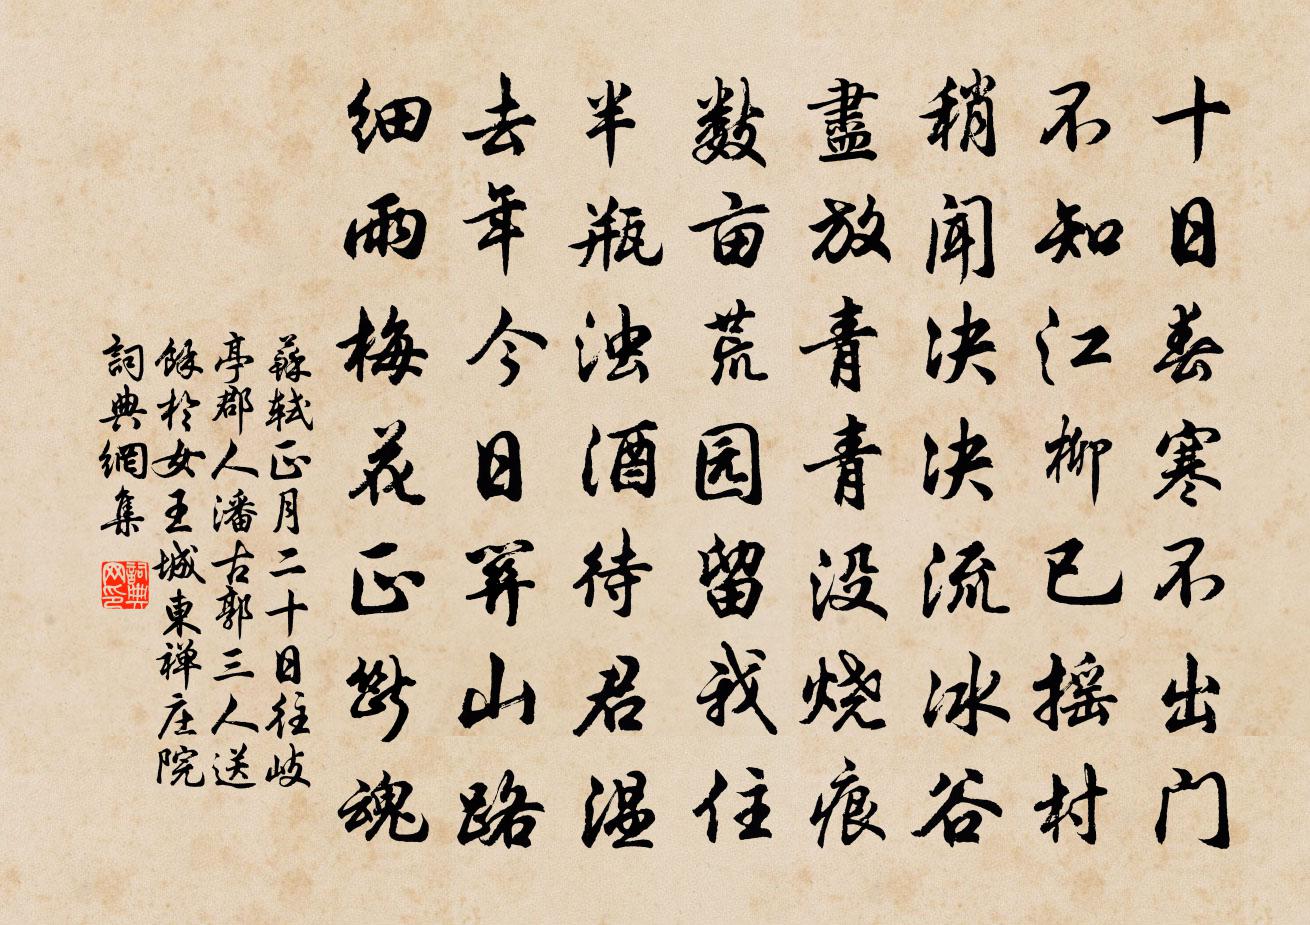 十日春寒不出门
不知江柳已摇村
稍闻决决流冰谷
盡放青青没烧痕
数亩荒园留我住
半瓶浊酒待君温
去年今日关山路
细雨梅花正断魂
蘇轼正月二十日往岐
亭郡人潘古郭三人送
餘於女王城東禅庄院
詞典網集
詞典网印